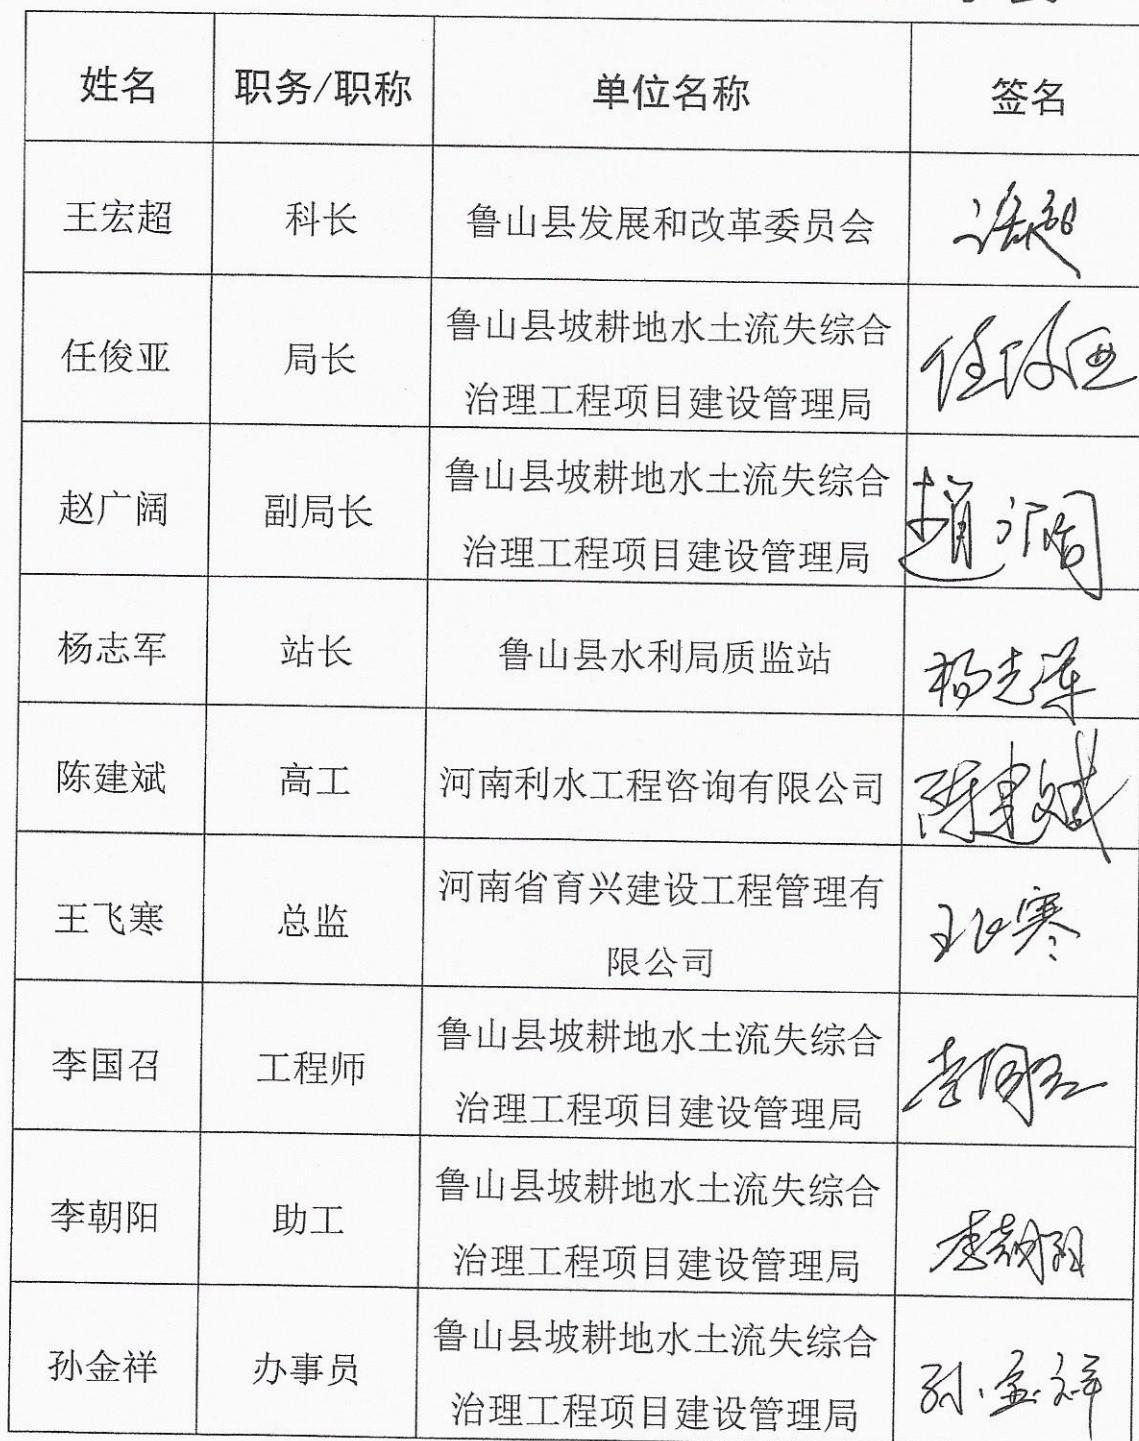 姓名 职务/职称 单位名称 签名
王宏超 科长 鲁山县发展和改革委员会
任俊亚 局长 鲁山县坡耕地水土流失综合
治理工程项目建设管理局 任俊亚
赵广阔 副局长 鲁山县坡耕地水土流失综合
治理工程项目建设管理局 赵广阔
杨志军 站长 鲁山县水利局质监站 杨志军
陈建斌 高工 河南利水工程咨询有限公司 陈建斌
王飞寒 总监 河南省育兴建设工程管理有
限公司 王飞寒
李国召 工程师 鲁山县坡耕地水土流失综合
治理工程项目建设管理局 李国召
李朝阳 助工 鲁山县坡耕地水土流失综合
治理工程项目建设管理局 李朝阳
孙金祥 办事员 鲁山县坡耕地水土流失综合
治理工程项目建设管理局 孙金祥